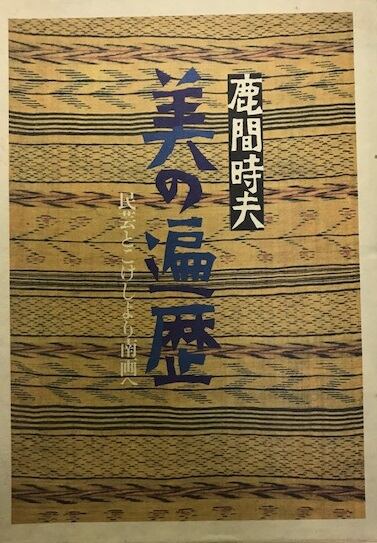 鹿間時夫
美の遍歴
民芸とこけしより南画へ